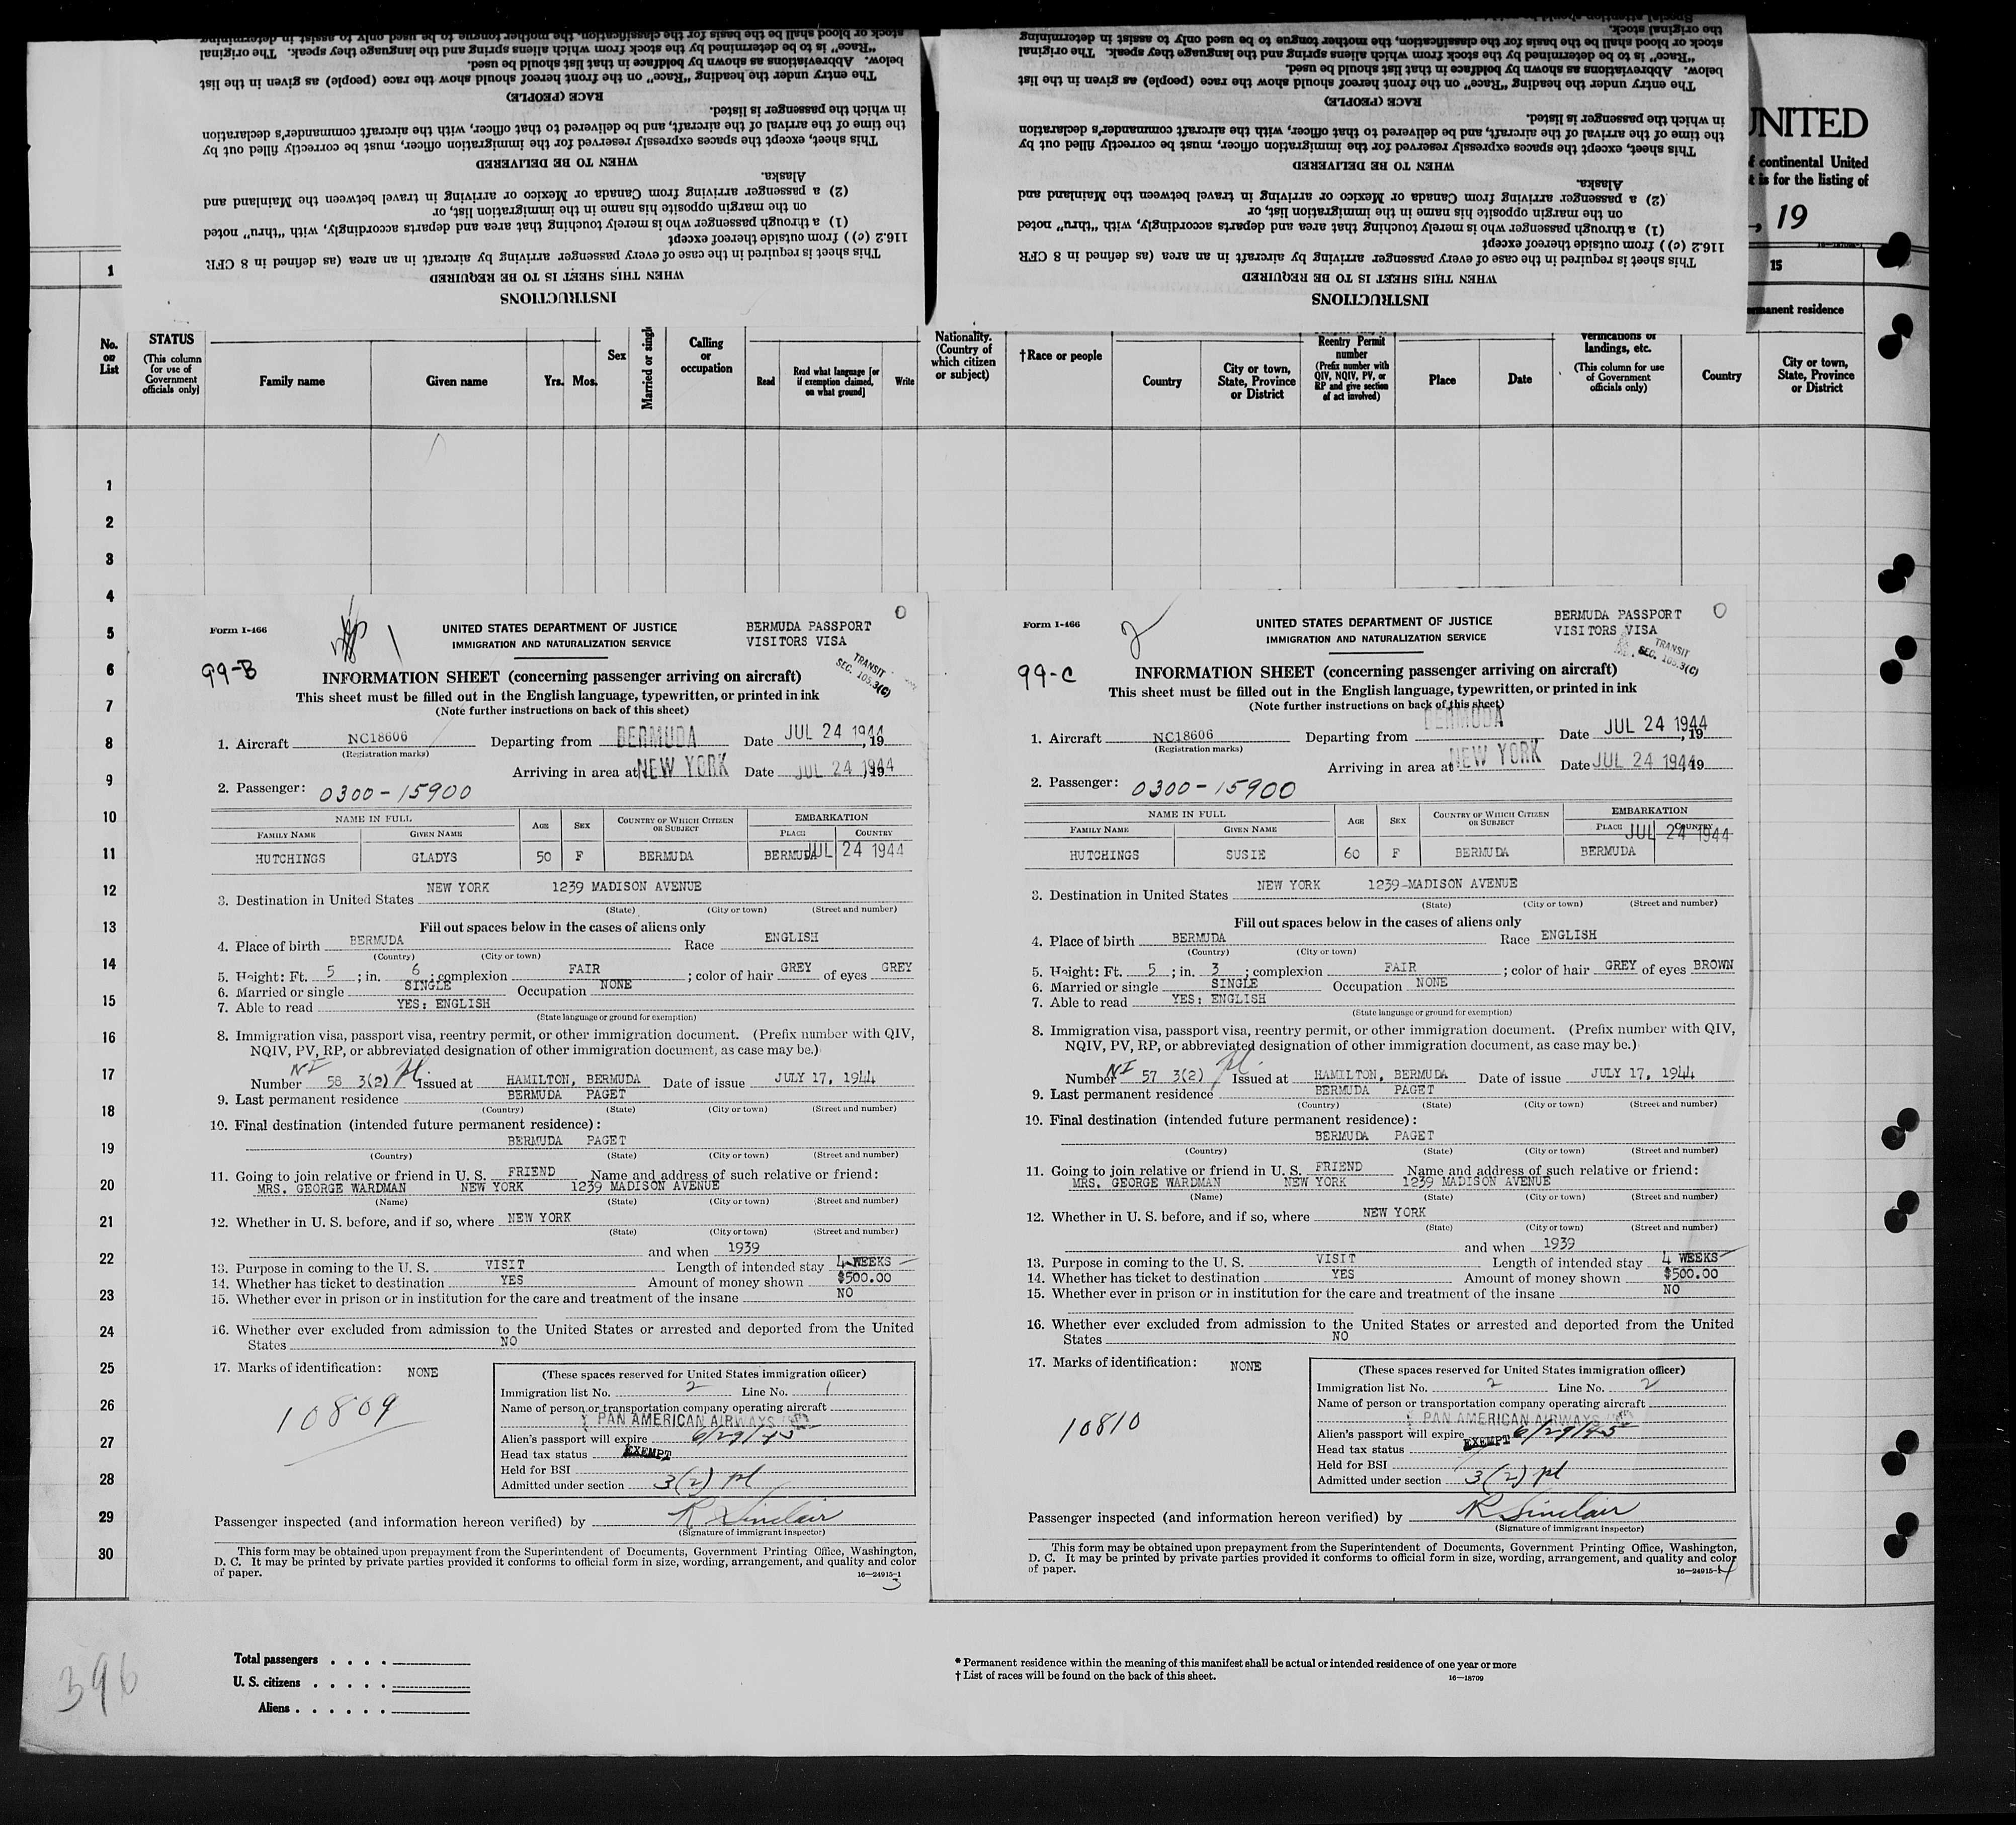 UNITED
f continental United
t is for the listing of
, 19
15
manent residence
INSTRUCTIONS
WHEN THIS SHEET IS TO BE REQUIRED
This sheet is required in the case of every passenger arriving by aircraft in an area (as defined in 8 CFR
116.2 (c) ) from outside thereof except
(1) a through passenger who is merely touching that area and departs accordingly, with "thru" noted
on the margin opposite his name in the immigration list, or
(2) a passenger arriving from Canada or Mexico or arriving in travel between the Mainland and
Alaska.
WHEN TO BE DELIVERED
This sheet, except the spaces expressly reserved for the immigration officer, must be correctly filled out by
the time of the arrival of the aircraft, and be delivered to that officer, with the aircraft commander's declaration
in which the passenger is listed.
RACE (PEOPLE)
The entry under the heading "Race" on the front hereof should show the race (people) as given in the list
below. Abbreviations as shown by boldface in that list should be used.
"Race" is to be determined by the stock from which aliens spring and the language they speak. The original
stock or blood shall be the basis for the classification, the mother tongue to be used only to assist in determining
INSTRUCTIONS
WHEN THIS SHEET IS TO BE REQUIRED
This sheet is required in the case of every passenger arriving by aircraft in an area (as defined in 8 CFR
116.2 (c) ) from outside thereof except
(1) a through passenger who is merely touching that area and departs accordingly, with "thru" noted
on the margin opposite his name in the immigration list, or
(2) a passenger arriving from Canada or Mexico or arriving in travel between the Mainland and
Alaska.
WHEN TO BE DELIVERED
This sheet, except the spaces expressly reserved for the immigration officer, must be correctly filled out by
the time of the arrival of the aircraft, and be delivered to that officer, with the aircraft commander's declaration
in which the passenger is listed.
RACE (PEOPLE)
The entry under the heading "Race" on the front hereof should show the race (people) as given in the list
below. Abbreviations as shown by boldface in that list should be used.
"Race" is to be determined by the stock from which aliens spring and the language they speak. The original
stock or blood shall be the basis for the classification, the mother tongue to be used only to assist in determining
the original stock.
1
No. on List
STATUS
(This column for use of Government officials only)
Family name
Given name
Yrs. Mos.
Sex
Married or single
Calling or occupation
Read
Read what language [or if exemption claimed, on what ground]
Write
Nationality. (Country of which citizen or subject)
†Race or people
Country
City or town, State, Province or District
Reentry Permit number
(Prefix number with QIV, NQIV, PV, or RP and give section of act involved)
Place
Date
verifications of landings, etc.
(This column for use of Government officials only)
Country
City or town, State, Province or District
1
2
3
4
5
6
7
8
9
10
11
12
13
14
15
16
17
18
19
20
21
22
23
24
25
26
27
28
29
30
Form I-466
1
0
UNITED STATES DEPARTMENT OF JUSTICE
IMMIGRATION AND NATURALIZATION SERVICE
BERMUDA PASSPORT
VISITORS VISA
TRANSIT
SEC. 105.3(C)
99-B
INFORMATION SHEET (concerning passenger arriving on aircraft)
This sheet must be filled out in the English language, typewritten, or printed in ink
(Note further instructions on back of this sheet)
1. Aircraft NC18606 Departing from BERMUDA Date JUL 24 1944, 19
(Registration marks)
Arriving in area at NEW YORK Date JUL 24 1944, 19
2. Passenger: 0300-15900
NAME IN FULL
FAMILY NAME GIVEN NAME AGE SEX COUNTRY OF WHICH CITIZEN OR SUBJECT EMBARKATION PLACE COUNTRY
HUTCHINGS GLADYS 50 F BERMUDA BERMUDA JUL 24 1944
3. Destination in United States NEW YORK 1239 MADISON AVENUE
(State) (City or town) (Street and number)
Fill out spaces below in the cases of aliens only
4. Place of birth BERMUDA Race ENGLISH
(Country) (City or town)
5. Height: Ft. 5 ; in. 6 ; complexion FAIR ; color of hair GREY of eyes GREY
6. Married or single SINGLE Occupation NONE
7. Able to read YES: ENGLISH
(State language or ground for exemption)
8. Immigration visa, passport visa, reentry permit, or other immigration document. (Prefix number with QIV,
NQIV, PV, RP, or abbreviated designation of other immigration document, as case may be.)
NI
Number 58 3(2) pl. Issued at HAMILTON, BERMUDA Date of issue JULY 17, 1944
9. Last permanent residence BERMUDA PAGET
(Country) (State) (City or town) (Street and number)
10. Final destination (intended future permanent residence):
BERMUDA PAGET
(Country) (State) (City or town) (Street and number)
11. Going to join relative or friend in U. S. FRIEND Name and address of such relative or friend:
MRS. GEORGE WARDMAN NEW YORK 1239 MADISON AVENUE
(Name) (State) (City or town) (Street and number)
12. Whether in U. S. before, and if so, where NEW YORK
(State) (City or town) (Street and number)
and when 1939
13. Purpose in coming to the U. S. VISIT Length of intended stay 4 WEEKS
14. Whether has ticket to destination YES Amount of money shown $500.00
15. Whether ever in prison or in institution for the care and treatment of the insane NO
16. Whether ever excluded from admission to the United States or arrested and deported from the United
States NO
17. Marks of identification: NONE
10809
(These spaces reserved for United States immigration officer)
Immigration list No. 2 Line No. 1
Name of person or transportation company operating aircraft
PAN AMERICAN AIRWAYS
Alien's passport will expire 6/29/45
Head tax status EXEMPT
Held for BSI
Admitted under section 3(2) pl
Passenger inspected (and information hereon verified) by R Sinclair
(Signature of immigrant inspector)
This form may be obtained upon prepayment from the Superintendent of Documents, Government Printing Office, Washington,
D. C. It may be printed by private parties provided it conforms to official form in size, wording, arrangement, and quality and color
of paper.
16—24915-1
3
Form I-466
2
0
UNITED STATES DEPARTMENT OF JUSTICE
IMMIGRATION AND NATURALIZATION SERVICE
BERMUDA PASSPORT
VISITORS VISA
TRANSIT
SEC. 105.3(C)
99-C
INFORMATION SHEET (concerning passenger arriving on aircraft)
This sheet must be filled out in the English language, typewritten, or printed in ink
(Note further instructions on back of this sheet)
1. Aircraft NC18606 Departing from BERMUDA Date JUL 24 1944, 19
(Registration marks)
Arriving in area at NEW YORK Date JUL 24 1944, 19
2. Passenger: 0300-15900
NAME IN FULL
FAMILY NAME GIVEN NAME AGE SEX COUNTRY OF WHICH CITIZEN OR SUBJECT EMBARKATION PLACE COUNTRY
JUL 24 1944
HUTCHINGS SUSIE 60 F BERMUDA BERMUDA
3. Destination in United States NEW YORK 1239-MADISON AVENUE
(State) (City or town) (Street and number)
Fill out spaces below in the cases of aliens only
4. Place of birth BERMUDA Race ENGLISH
(Country) (City or town)
5. Height: Ft. 5 ; in. 3 ; complexion FAIR ; color of hair GREY of eyes BROWN
6. Married or single SINGLE Occupation NONE
7. Able to read YES: ENGLISH
(State language or ground for exemption)
8. Immigration visa, passport visa, reentry permit, or other immigration document. (Prefix number with QIV,
NQIV, PV, RP, or abbreviated designation of other immigration document, as case may be.)
NI
Number 57 3(2) pl. Issued at HAMILTON, BERMUDA Date of issue JULY 17, 1944
9. Last permanent residence BERMUDA PAGET
(Country) (State) (City or town) (Street and number)
10. Final destination (intended future permanent residence):
BERMUDA PAGET
(Country) (State) (City or town) (Street and number)
11. Going to join relative or friend in U. S. FRIEND Name and address of such relative or friend:
MRS. GEORGE WARDMAN NEW YORK 1239 MADISON AVENUE
(Name) (State) (City or town) (Street and number)
12. Whether in U. S. before, and if so, where NEW YORK
(State) (City or town) (Street and number)
and when 1939
13. Purpose in coming to the U. S. VISIT Length of intended stay 4 WEEKS
14. Whether has ticket to destination YES Amount of money shown $500.00
15. Whether ever in prison or in institution for the care and treatment of the insane NO
16. Whether ever excluded from admission to the United States or arrested and deported from the United
States NO
17. Marks of identification: NONE
10810
(These spaces reserved for United States immigration officer)
Immigration list No. 2 Line No. 2
Name of person or transportation company operating aircraft
PAN AMERICAN AIRWAYS
Alien's passport will expire 6/29/45
Head tax status EXEMPT
Held for BSI
Admitted under section 3(2) pl
Passenger inspected (and information hereon verified) by R Sinclair
(Signature of immigrant inspector)
This form may be obtained upon prepayment from the Superintendent of Documents, Government Printing Office, Washington,
D. C. It may be printed by private parties provided it conforms to official form in size, wording, arrangement, and quality and color
of paper.
16—24915-1
4
396
Total passengers . . . .
U. S. citizens . . . . .
Aliens . . . . . .
* Permanent residence within the meaning of this manifest shall be actual or intended residence of one year or more
† List of races will be found on the back of this sheet.
16—18709